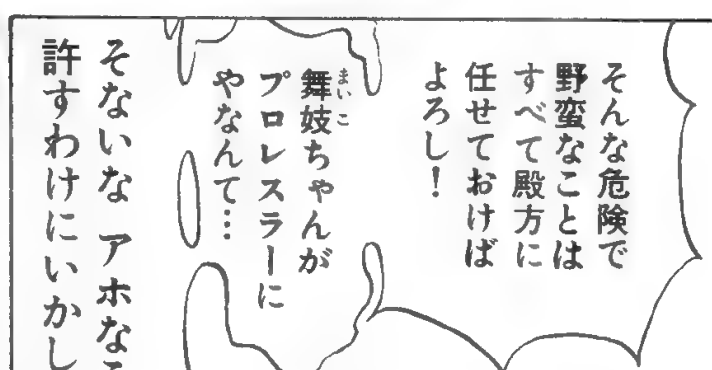 そんな危険で
野蛮なことは
すべて殿方に
任せておけば
よろし!
舞妓ちゃんが
プロレスラーに
やなんて…
そないな アホな
許すわけにいかし